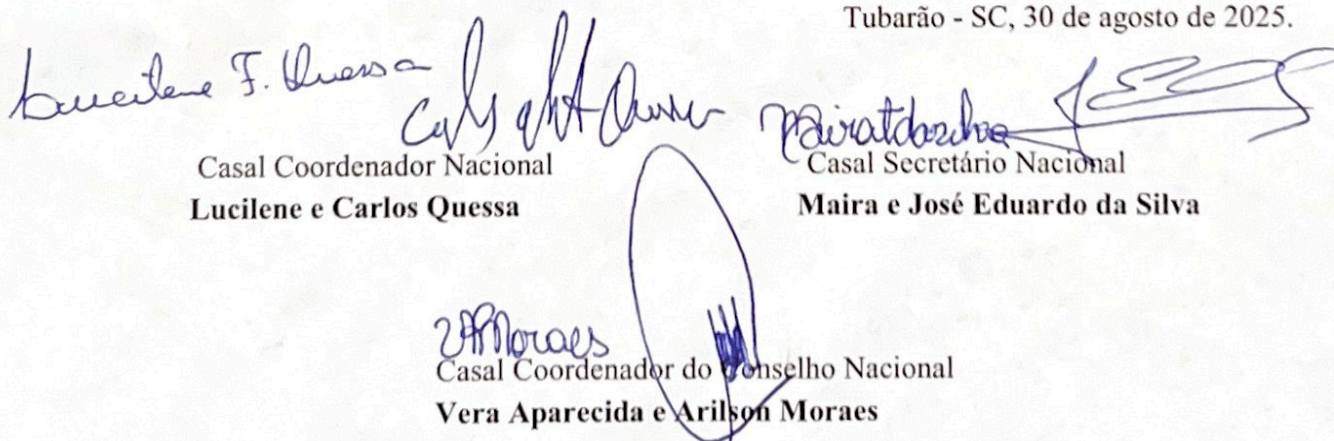 Tubarão - SC, 30 de agosto de 2025.
Lucilene F. Quessa
Casal Coordenador Nacional
Lucilene e Carlos Quessa
Casal Secretário Nacional
Maira e José Eduardo da Silva
VAMoraes
Casal Coordenador do Conselho Nacional
Vera Aparecida e Arilson Moraes